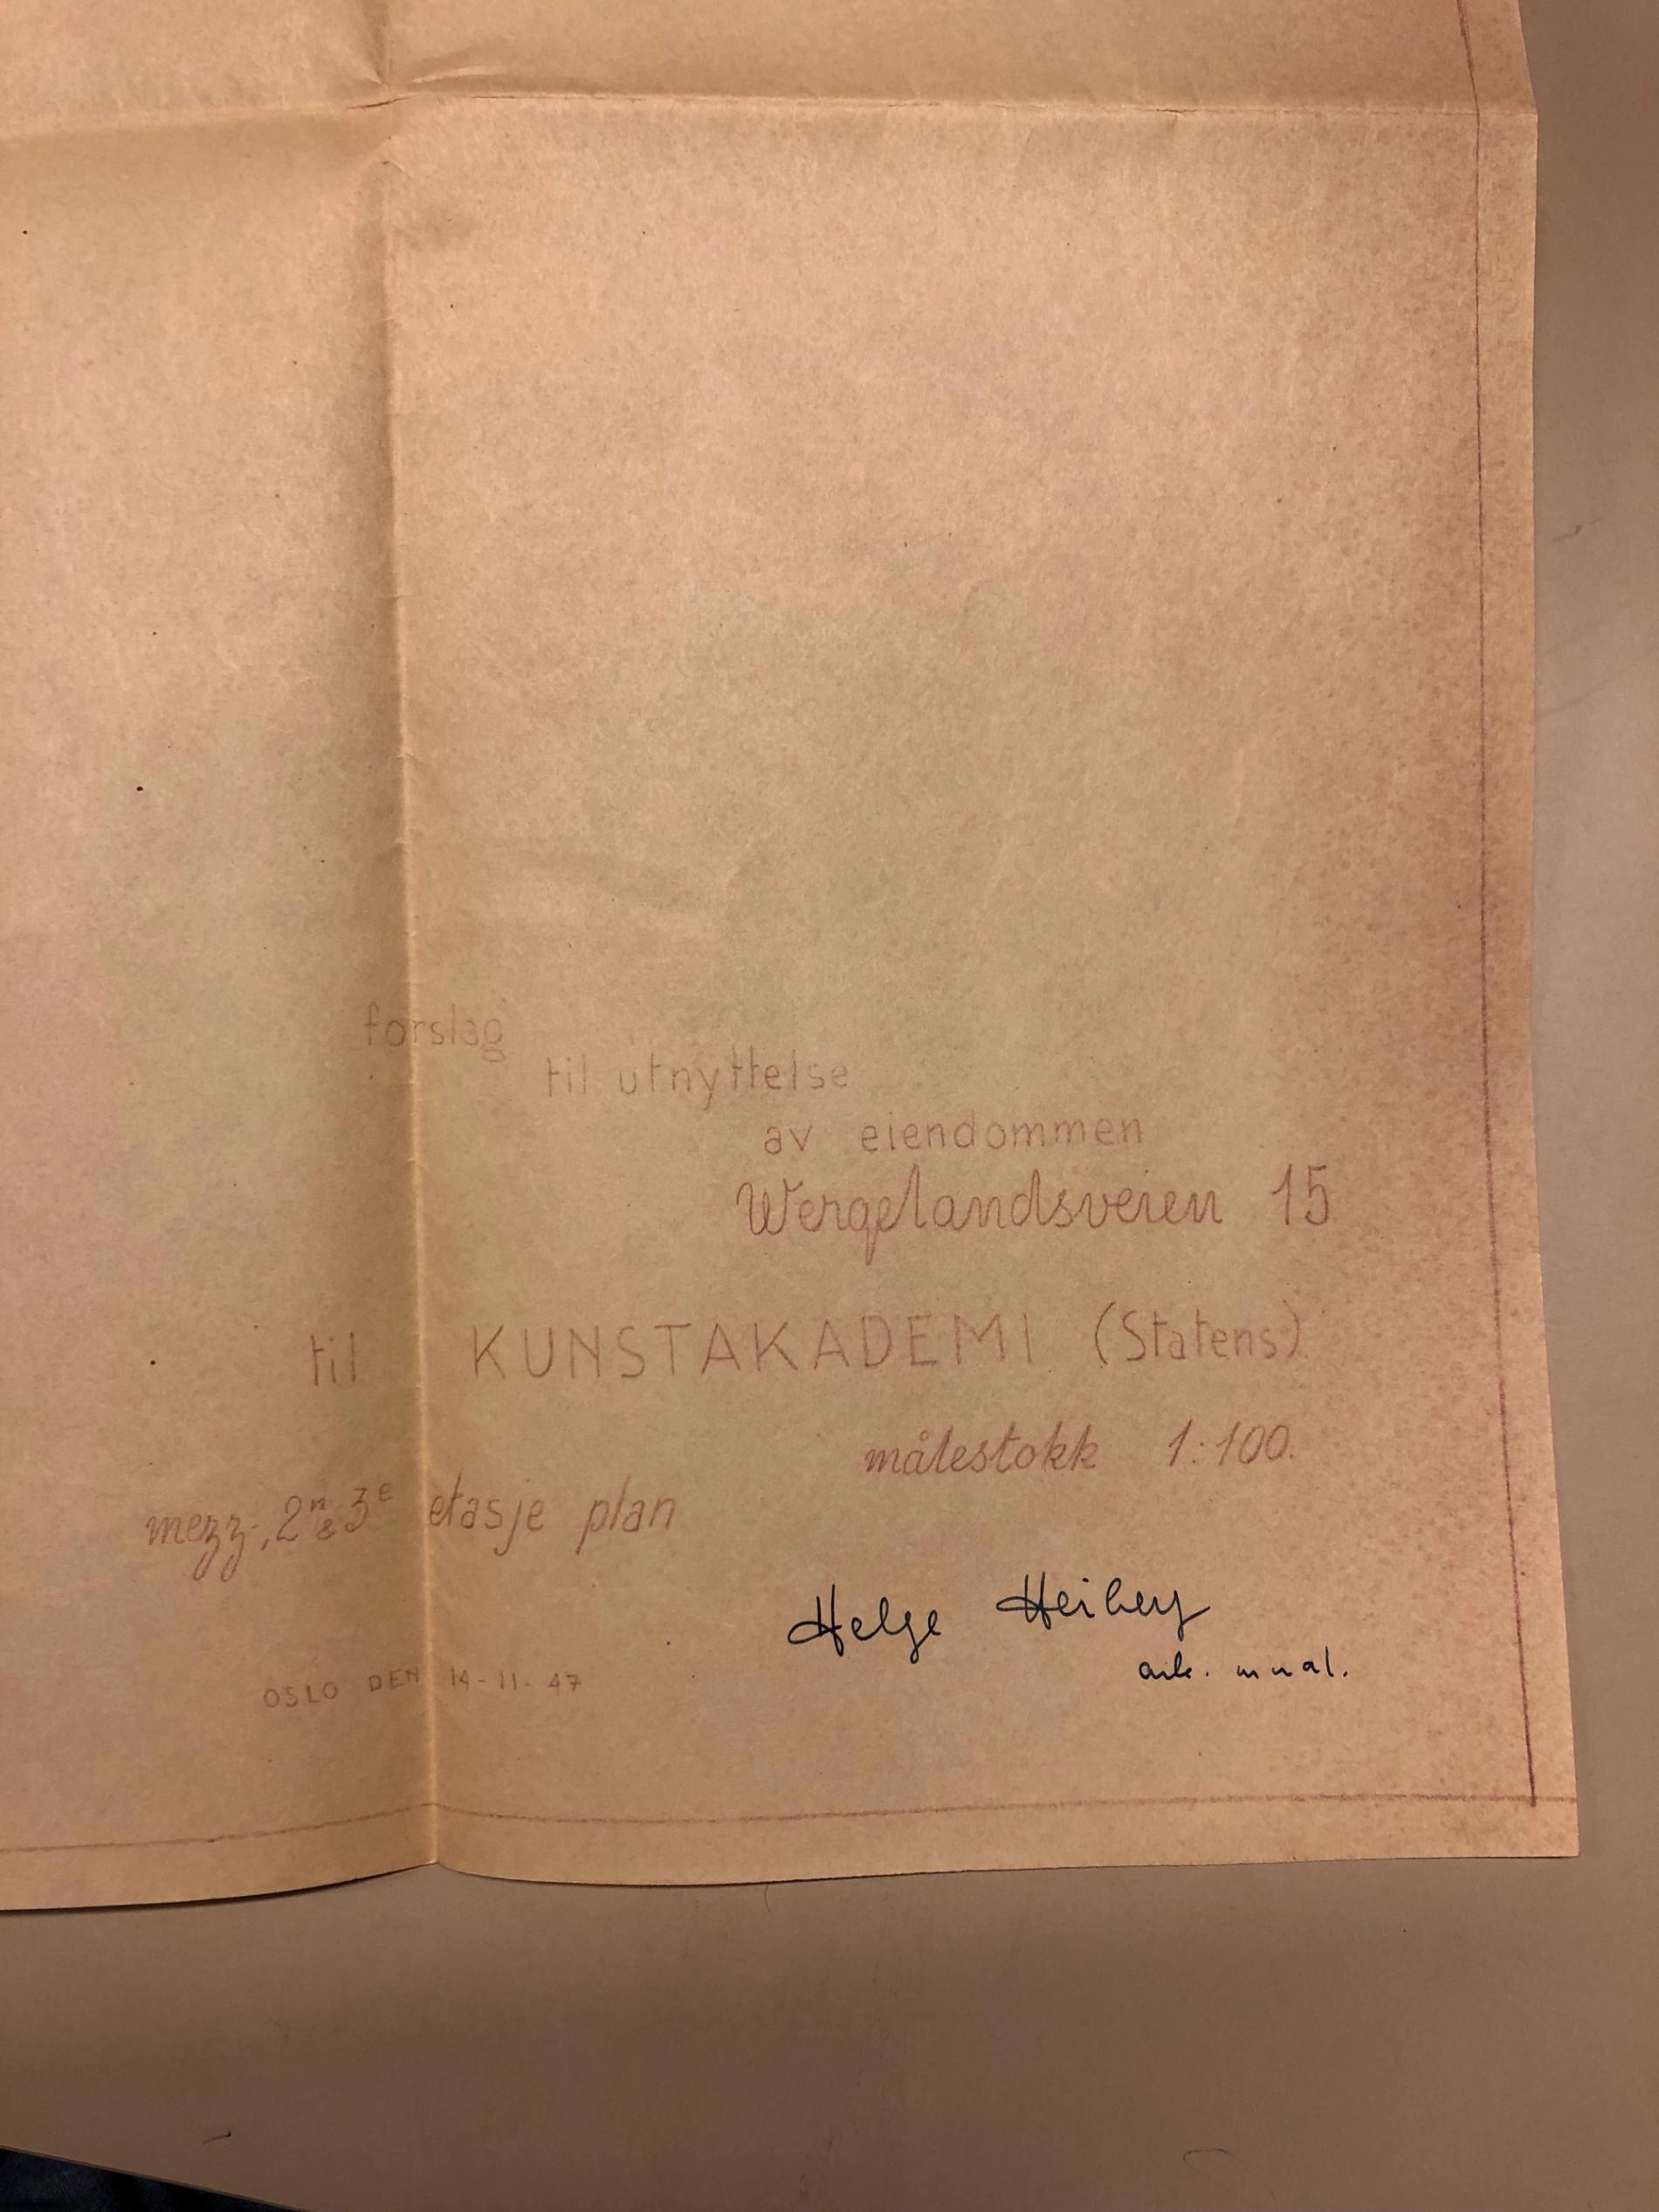 forslag
til utnyttelse
av eiendommen
Wergelandsveien 15
til KUNSTAKADEMI (Statens)
målestokk 1:100.
mezz-, 2n & 3e etasje plan
Helge Heiberg
ark. mnal.
OSLO DEN 14-11-47